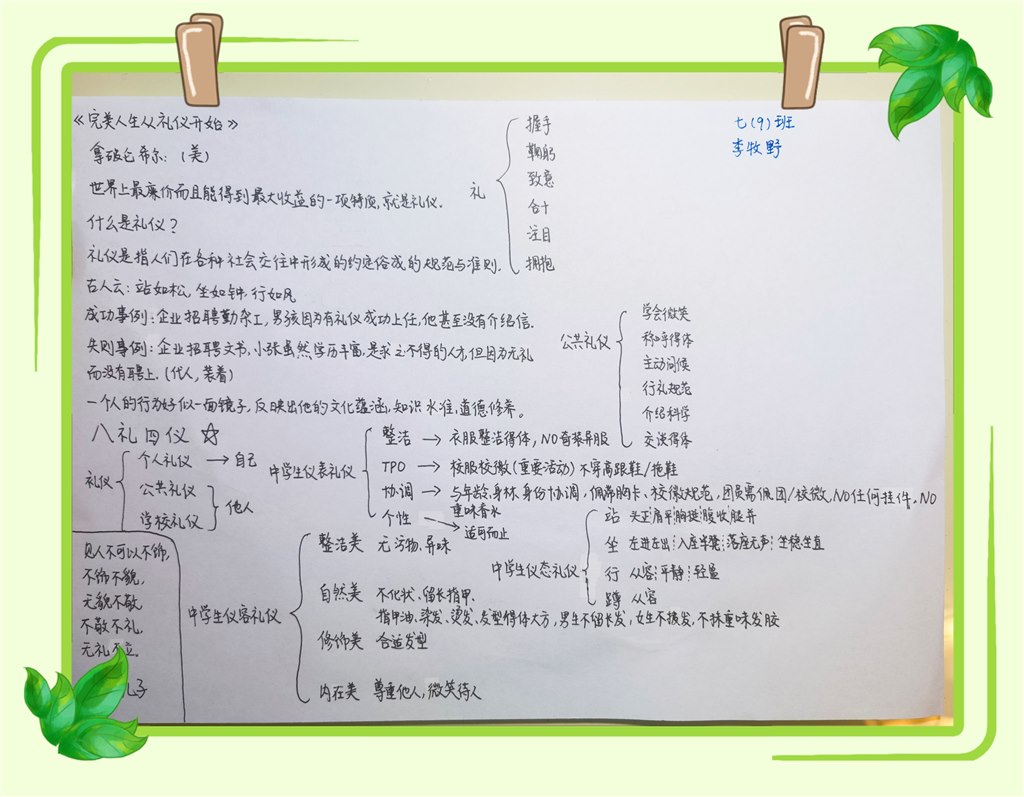 《完美人生从礼仪开始》
拿破仑希尔:(美)
世界上最廉价而且能得到最大收益的一项特质,就是礼仪.
什么是礼仪?
礼仪是指人们在各种社会交往中形成的约定俗成的规范与准则.
古人云:站如松,坐如钟,行如风
成功事例:企业招聘勤杂工,男孩因为有礼仪成功上任,他甚至没有介绍信.
失则事例:企业招聘文书,小张虽然学历丰富,是求之不得的人才,但因为无礼
而没有聘上.(代人,装着)
一个人的行为好似一面镜子,反映出他的文化蕴涵,知识水准,道德修养。
礼
握手
鞠躬
致意
合十
注目
拥抱
七(9)班
李牧野
公共礼仪
学会微笑
称呼得体
主动问候
行礼规范
介绍科学
交谈得体
八礼四仪☆
礼仪
个人礼仪→自己
公共礼仪
学校礼仪
他人
中学生仪表礼仪
整洁→衣服整洁得体,NO奇装异服
TPO→校服校徽(重要活动)不穿高跟鞋/拖鞋
协调→与年龄,身材,身份协调,佩带胸卡、校徽规范,团员需佩团/校徽,NO任何挂件,NO
重味香水
个性→适可而止
中学生仪态礼仪
站 头正肩平胸挺腹收腿并
坐 左进左出 入座半凳 落座无声 坐稳坐直
行 从容 平静 轻盈
蹲 从容
见人不可以不饰,
不饰不貌,
无貌不敬
不敬不礼,
无礼不立.
子
中学生仪容礼仪
整洁美 无污物,异味
自然美 不化妆、留长指甲、
指甲油、染发、烫发、发型得体大方,男生不留长发,女生不披发,不抹重味发胶
修饰美 合适发型
内在美 尊重他人,微笑待人